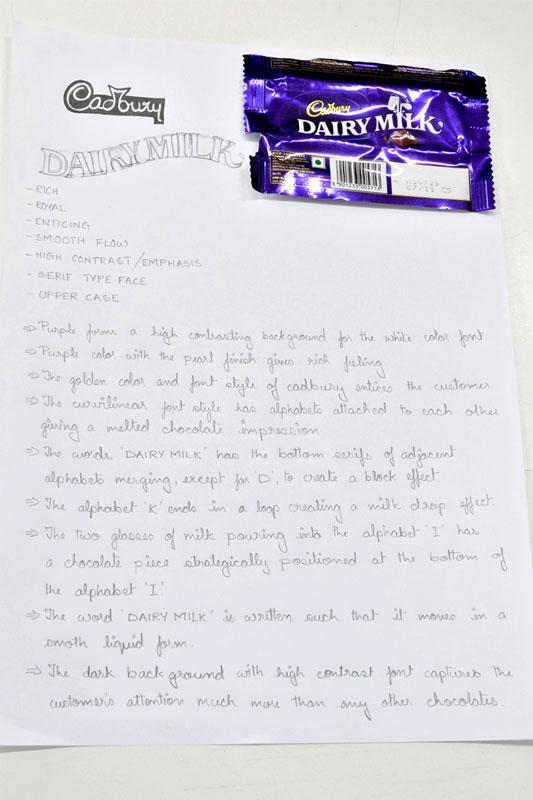 Cadbury
DAIRY MIILK
Cadbury
DAIRY MILK
- RICH
- ROYAL
- ENTICING
- SMOOTH FLOW
- HIGH CONTRAST/EMPHASIS
- SERIF TYPE FACE
- UPPER CASE
⇒ Purple forms a high contrasting background for the white color font
⇒ Purple color with the pearl finish gives rich feeling
⇒ The golden color and font style of cadbury entices the customer
⇒ The curvilinear font style has alphabets attached to each other
giving a melted chocolate impression
⇒ The words 'DAIRY MILK' has the bottom serifs of adjacent
alphabets merging, except for 'D', to create a block effect.
⇒ The alphabet 'K' ends in a loop creating a milk drop effect.
⇒ The two glasses of milk pouring into the alphabet 'I' has
a chocolate piece strategically positioned at the bottom of
the alphabet 'I'
⇒ The word 'DAIRY MILK' is written such that it moves in a
smoth liquid form.
⇒ The dark background with high contrast font captures the
customer's attention much more than any other chocolates.